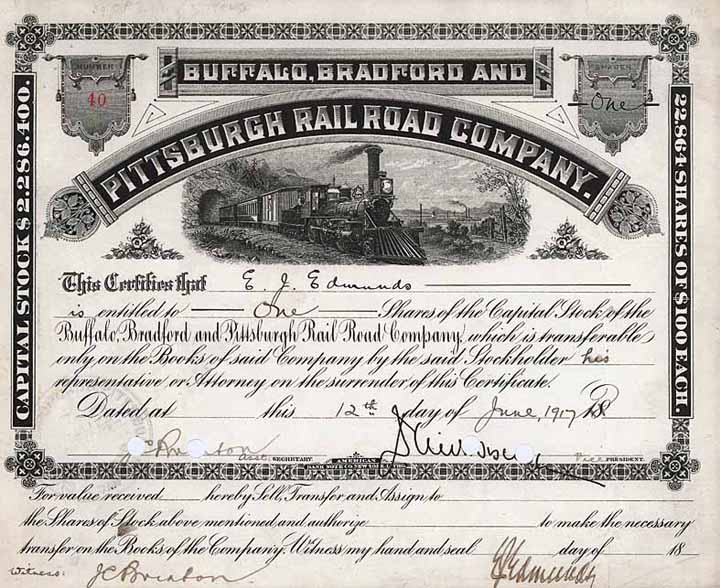 NUMBER
40
BUFFALO, BRADFORD AND
PITTSBURGH RAIL ROAD COMPANY.
One
CAPITAL STOCK $2,286,400.
22,864 SHARES OF $100 EACH.
This Certifies that E. J. Edmunds
is entitled to One Shares of the Capital Stock of the
Buffalo, Bradford and Pittsburgh Rail Road Company, which is transferable
only on the Books of said Company by the said Stockholder his
representative or Attorney on the surrender of this Certificate.
Dated at this 12th day of June, 1917 18
Asst. SECRETARY
AMERICAN
BANK NOTE CO. NEW YORK
Vice PRESIDENT.
For value received hereby Sell, Transfer and Assign to
the Shares of Stock above mentioned and authorize to make the necessary
transfer on the Books of the Company. Witness my hand and seal day of 18
Witness: EJ Edmunds